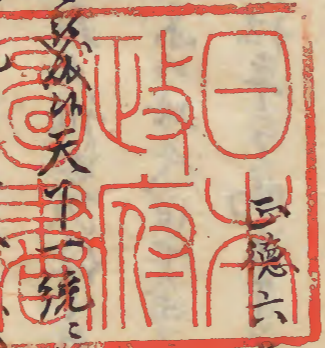 日本
政府
圖書
正徳六
天下一統ニ